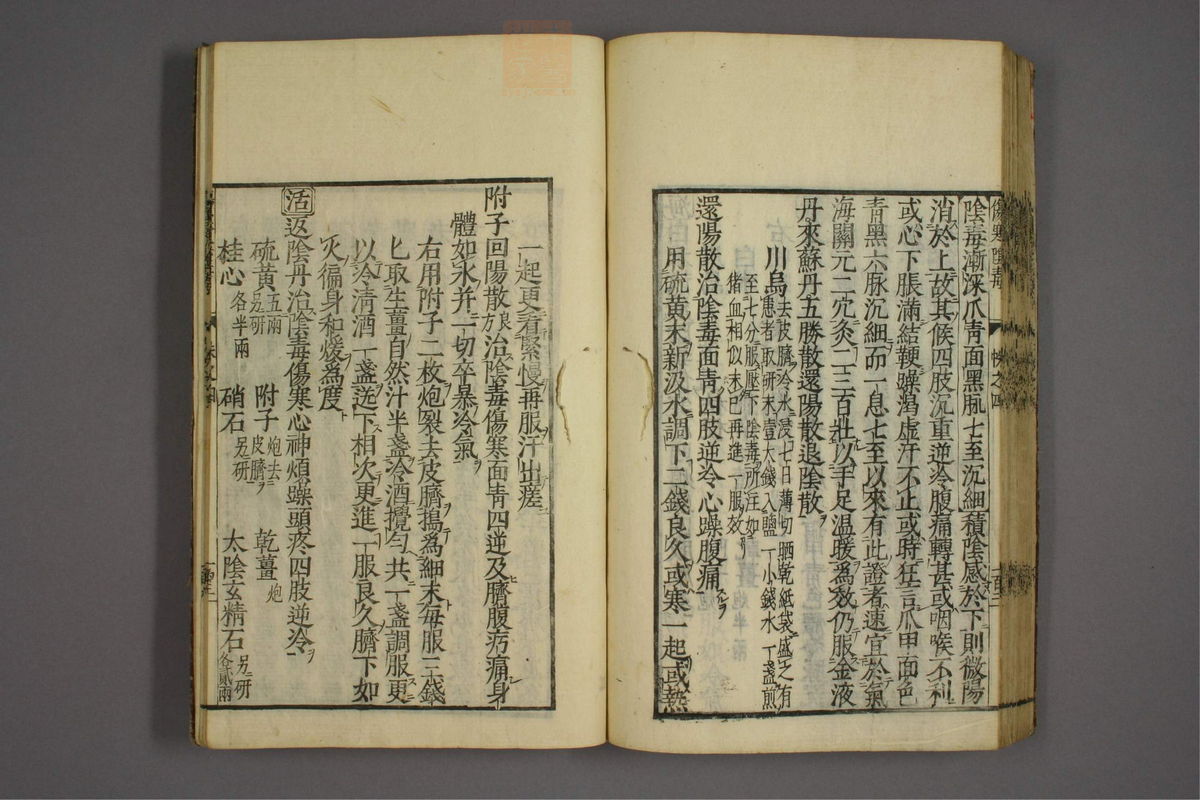 陰毒漸深爪青面黑脉七至沉細積陰感於下則微陽
消於上故其候四肢沉重逆冷腹痛轉甚或咽喉不利
或心下脹滿結鞕躁渴虛汗不止或時狂言爪甲面色
青黑六脉沉細而一息七至以來有此證者速宜於氣
海關元二穴灸二三百壯以手足温暖爲效仍服金液
丹來蘇丹五勝散還陽散退陰散
川烏
去皮臍冷水浸七日薄切晒乾紙袋盛之有
患者取研末壹大錢入鹽一小錢水一盞煎
至七分服壓下陰毒所注如
猪血相似未已再進一服效
還陽散治陰毒面青四肢逆冷心躁腹痛
用硫黄末新汲水調下二錢良久或寒一起或熱
一起更看緊慢再服汗出瘥
附子回陽散良方治陰毒傷寒面青四逆及臍腹疞痛身
體如氷并一切卒暴冷氣
右用附子二枚炮裂去皮臍搗爲細末每服三錢
匕取生薑自然汁半盞冷酒攪勻共一盞調服更
以冷清酒一盞送下相次更進一服良久臍下如
火徧身和煖爲度
活返陰丹治陰毒傷寒心神煩躁頭疼四肢逆冷
硫黄五兩另研 附子炮去皮臍 乾薑炮
桂心各半兩 硝石另研 太陰玄精石另研各貳兩